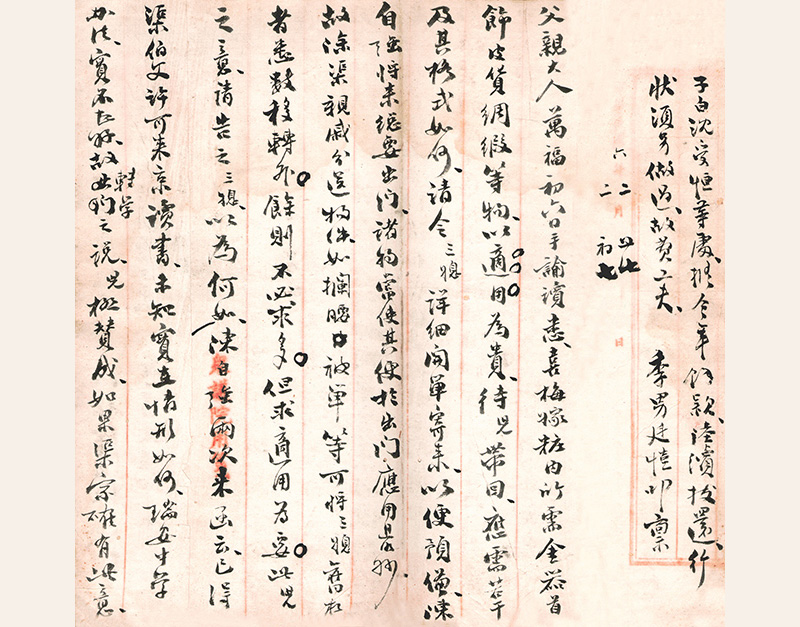 子白沈受恒等處、據今年領款、陸濱撥還、行
狀須另做過、故費工夫、 季男廷愷叩稟
六 二月 初七
父親大人萬福初六日手諭讀悉、喜梅嫁粧內所需金器首
飾皮貨綢緞等物、以適用為貴、待兒帶回、應需若干
及其格式如何、請令三媳詳細開單寄來、以便預備、涑
自強將來總要出門、諸物當使其便於出門應用是妙、
故除渠親戚分送物件如攔腰巾被單等可將三媳舊存
者悉數移轉外、餘則不必求多、但求適用為要、此兒
之意、請告之三媳、以為何如、涑自強兩次來函云、已得
渠伯父許可來京讀書、未知實在情形如何、瑞安中學
辦法、實不甚好、故出門轉學之說、兒極贊成、如果渠家確有此意、